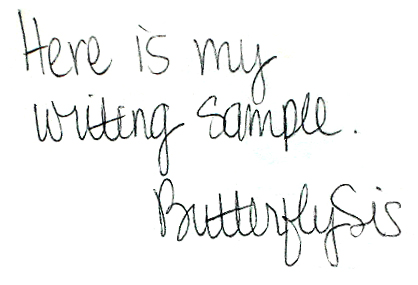 Here is my
writing sample.
ButterflySis